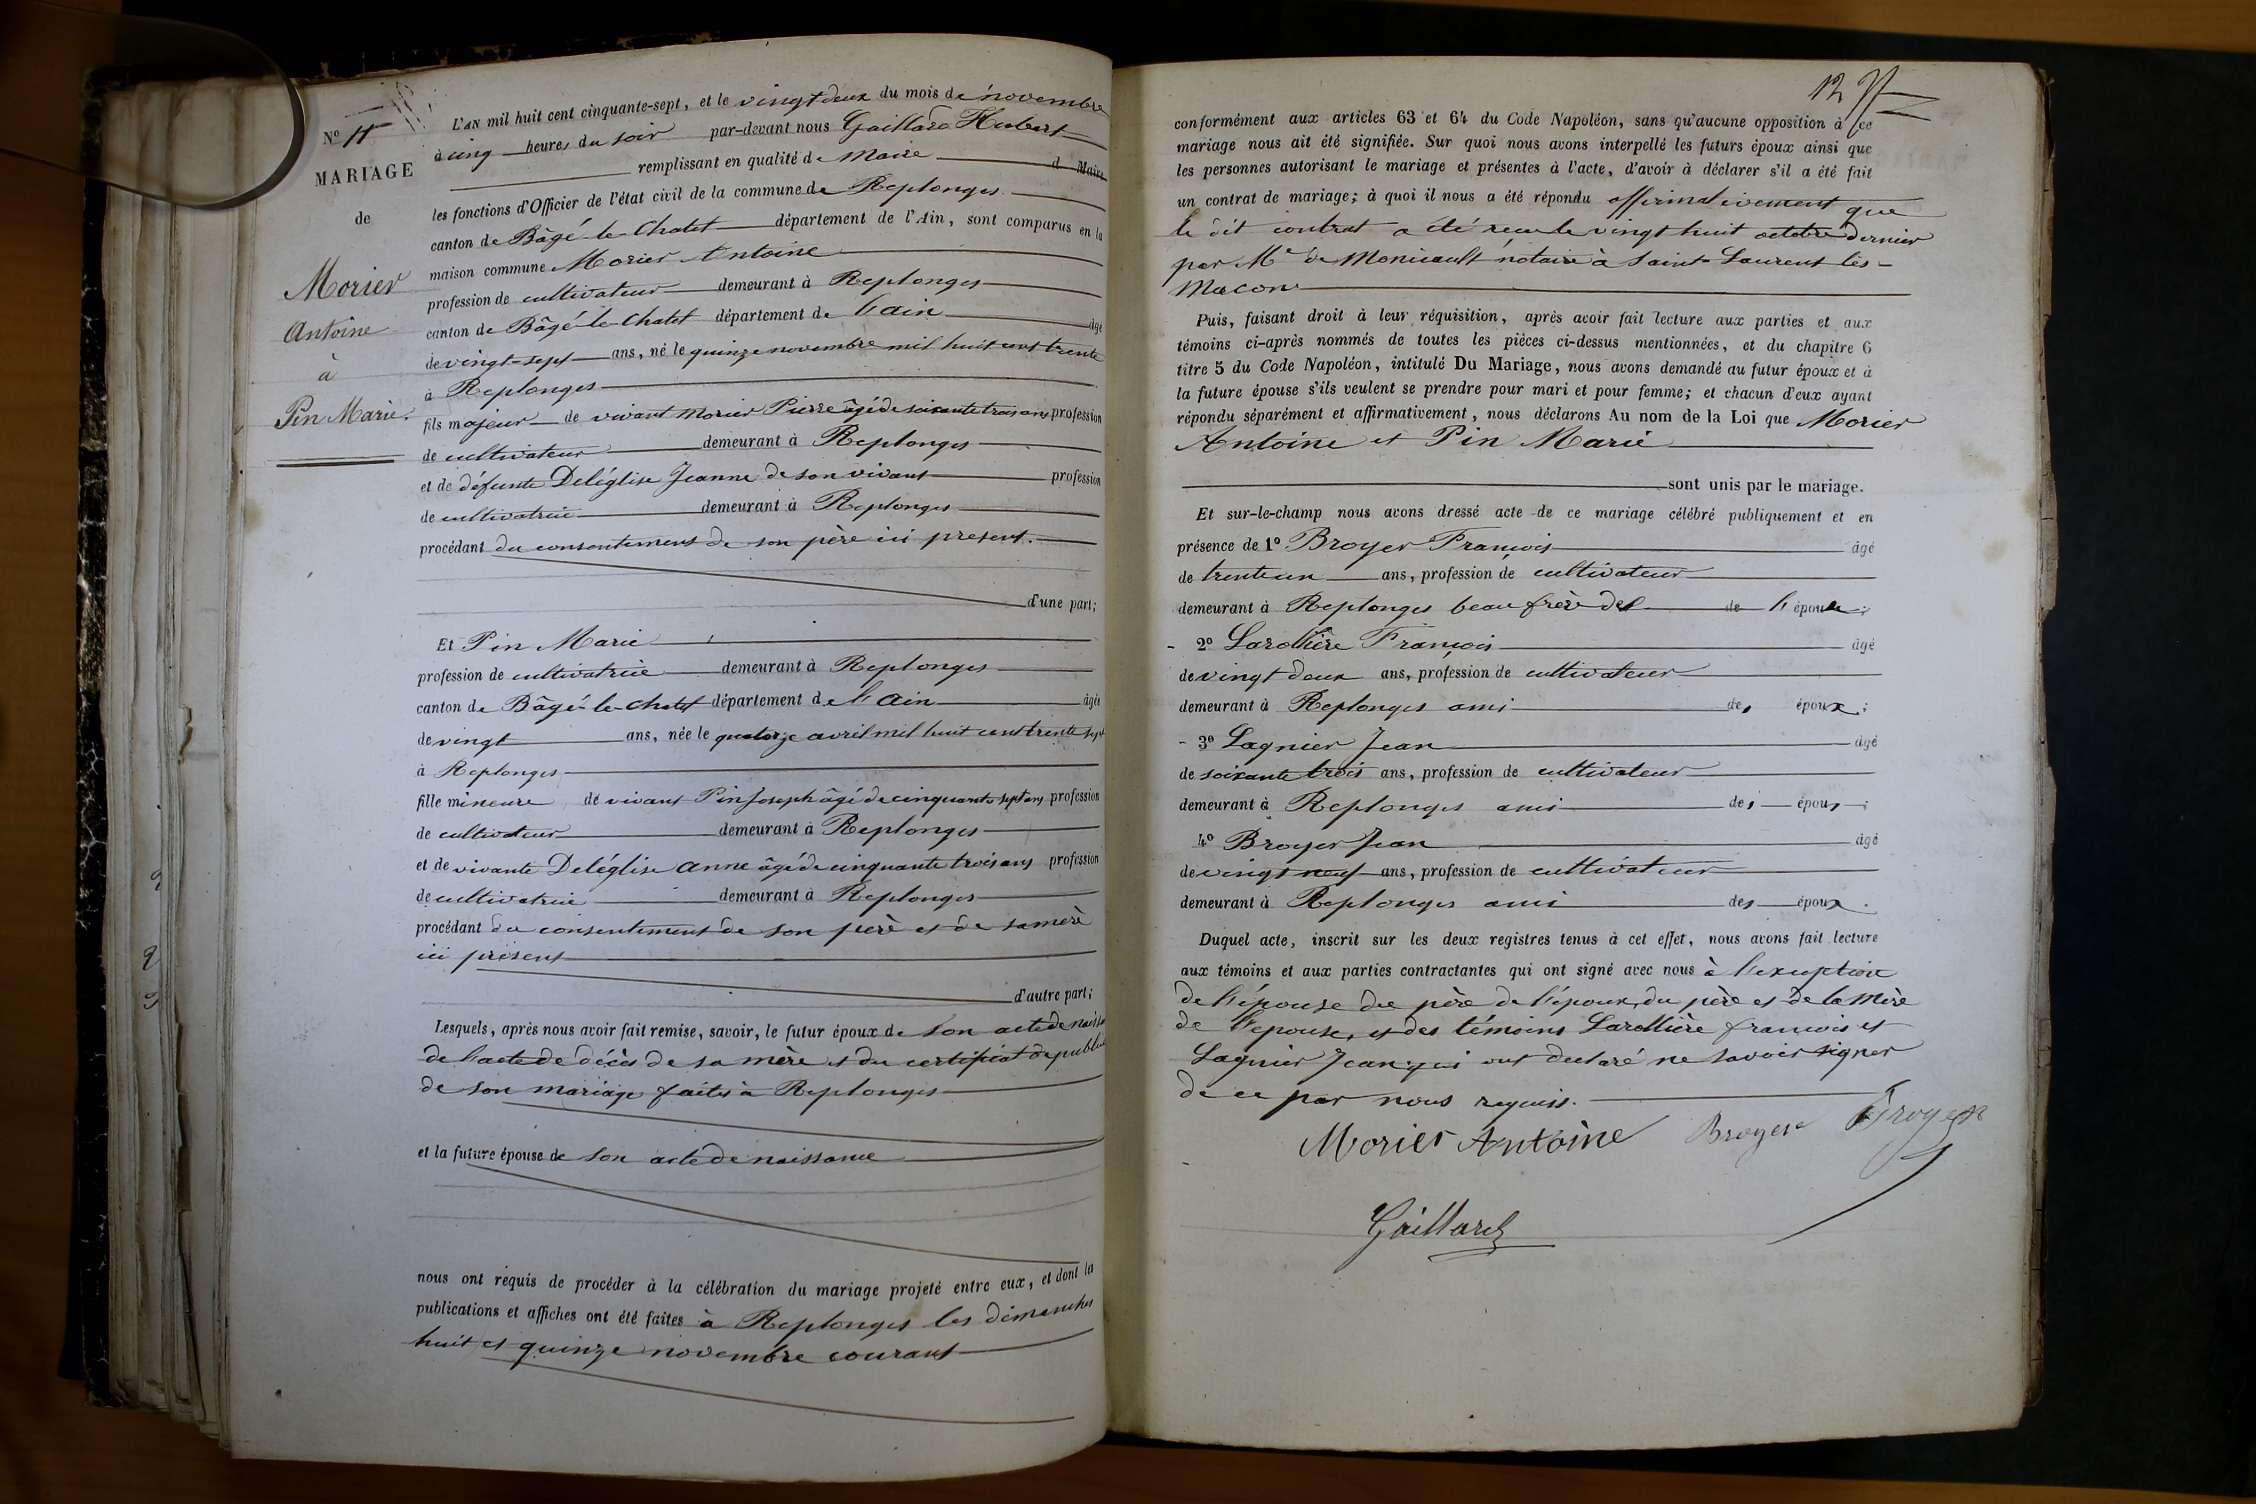 N° 11
MARIAGE
de
Morier
Antoine
à
Pin Marie.
L'AN mil huit cent cinquante-sept, et le vingt deux du mois de novembre
à cinq heures du soir par-devant nous Gaillard Hubert
remplissant en qualité de Maire d Maire
les fonctions d'Officier de l'état civil de la commune de Replonges
canton de Bâgé-le-Chatel département de l'Ain, sont comparus en la
maison commune Morier Antoine
profession de cultivateur demeurant à Replonges
canton de Bâgé-le-Chatel département de l'ain âgé
de vingt-sept ans, né le quinze novembre mil huit cent trente
à Replonges
fils majeur de vivant Morier Pierre âgé de soixante trois ans profession
de cultivateur demeurant à Replonges
et de défunte Deléglise Jeanne de son vivant profession
de cultivatrice demeurant à Replonges
procédant du consentement de son père ici present.
d'une part;
Et Pin Marie
profession de cultivatrice demeurant à Replonges
canton de Bâgé-le-Chatel département de l'Ain âgée
de vingt ans, née le quatorze avril mil huit cent trente sept
à Replonges
fille mineure de vivant Pin Joseph âgé de cinquante sept ans profession
de cultivateur demeurant à Replonges
et de vivante Deléglise Anne âgé de cinquante trois ans profession
de cultivatrice demeurant à Replonges
procédant du consentement de son père et de sa mère
ici présent
d'autre part;
Lesquels, après nous avoir fait remise, savoir, le futur époux de son acte de naiss
de l'acte de décès de sa mère et du certificat de publi
de son mariage faites à Replonges
et la future épouse de son acte de naissance
nous ont requis de procéder à la célébration du mariage projeté entre eux, et dont les
publications et affiches ont été faites à Replonges les dimanches
huit et quinze novembre courant
12
conformément aux articles 63 et 64 du Code Napoléon, sans qu'aucune opposition à ce
mariage nous ait été signifiée. Sur quoi nous avons interpellé les futurs époux ainsi que
les personnes autorisant le mariage et présentes à l'acte, d'avoir à déclarer s'il a été fait
un contrat de mariage; à quoi il nous a été répondu affirmativement que
le dit contrat a été recu le vingt huit octobre dernier
par Me de Monicault notaire à Saint-Laurent-lès-
Macon
Puis, faisant droit à leur réquisition, après avoir fait lecture aux parties et aux
témoins ci-après nommés de toutes les pièces ci-dessus mentionnées, et du chapitre 6
titre 5 du Code Napoléon, intitulé Du Mariage, nous avons demandé au futur époux et à
la future épouse s'ils veulent se prendre pour mari et pour femme; et chacun d'eux ayant
répondu séparément et affirmativement, nous déclarons Au nom de la Loi que Morier
Antoine et Pin Marie
sont unis par le mariage.
Et sur-le-champ nous avons dressé acte de ce mariage célébré publiquement et en
présence de 1° Broyer François âgé
de trente un ans, profession de cultivateur
demeurant à Replonges beau frère de l'épouse;
2° Larollière François âgé
de vingt deux ans, profession de cultivateur
demeurant à Replonges ami des époux;
3° Lagnier Jean âgé
de soixante trois ans, profession de cultivateur
demeurant à Replonges ami des époux;
4° Broyer Jean âgé
de vingt neuf ans, profession de cultivateur
demeurant à Replonges ami des époux.
Duquel acte, inscrit sur les deux registres tenus à cet effet, nous avons fait lecture
aux témoins et aux parties contractantes qui ont signé avec nous à l'exception
de l'épouse du père de l'époux, du père et de la mère
de l'epouse, et des témoins Larollière francois et
Lagnier Jean qui ont declaré ne savoir signer
de ce par nous requis.
Morier Antoine Broyer Broyer
Gaillard